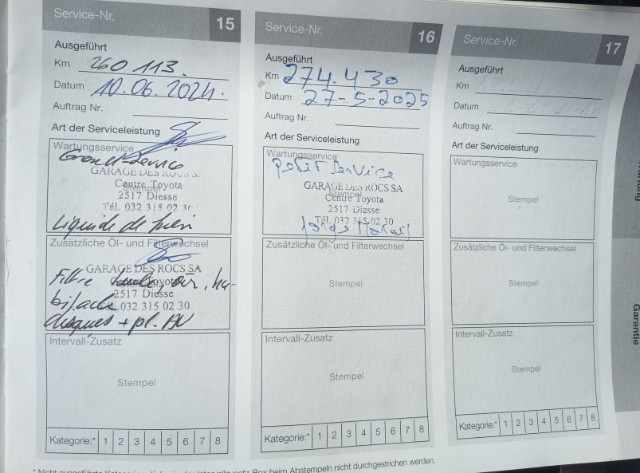 Service-Nr. 15
Ausgeführt
Km 260 113.
Datum 10.06.2024.
Auftrag Nr.
Art der Serviceleistung
Wartungsservice
Grand Service
GARAGE DES ROCS SA
Centre Toyota
2517 Diesse
Tél. 032 315 02 30
Liquide de frein
Zusätzliche Öl- und Filterwechsel
GARAGE DES ROCS SA
Filtre air, ha-
2517 Diesse
bitacle 032 315 02 30
disques + pl. AV
Intervall-Zusatz
Stempel
Kategorie:* 1 2 3 4 5 6 7 8
Service-Nr. 16
Ausgeführt
Km 274.430
Datum 27-5-2025
Auftrag Nr.
Art der Serviceleistung
Wartungsservice
petit Service
GARAGE DES ROCS SA
Centre Toyota
2517 Diesse
Tél. 032 315 02 30
Zusätzliche Öl- und Filterwechsel
Stempel
Intervall-Zusatz
Stempel
Kategorie:* 1 2 3 4 5 6 7 8
Service-Nr. 17
Ausgeführt
Km
Datum
Auftrag Nr.
Art der Serviceleistung
Wartungsservice
Stempel
Zusätzliche Öl- und Filterwechsel
Stempel
Intervall-Zusatz
Stempel
Kategorie:* 1 2 3 4 5 6 7 8
Garantie
beim Abstempeln nicht durchgestrichen werden.